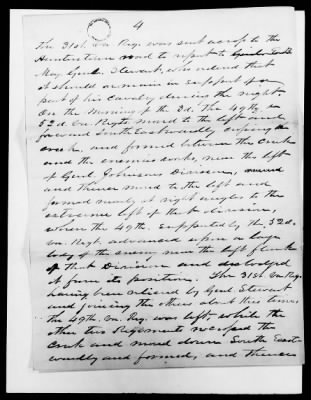 4
The 31st. Va. Reg. was sent across to the
Hunterstown road to report to
Maj. Genl. Stewart, who ordered that
it should remain in support of a
part of his cavalry during the night.
On the Morning of the 3d. The 49th &
52d Va. Regts moved to the left and
forward South Eastwardly crossing a
creek, and formed between the creek
and the enemies works, near the left
of Genl Johnsons Division,
and thence moved to the left and
formed nearly at right angles to the
extreme left of that division,
when the 49th. supported by the 52d.
Va. Regt. advanced upon a large
body of the enemy near the left flank
of that Division, and dislodged
it from its position. The 31st Va. Reg.
having been relieved by Genl Stewart
and joining the others about this time,
the 49th. Va. Reg. was left while the
other two Regiments recrossed the
Creek and moved down South East-
wardly and formed, and thence